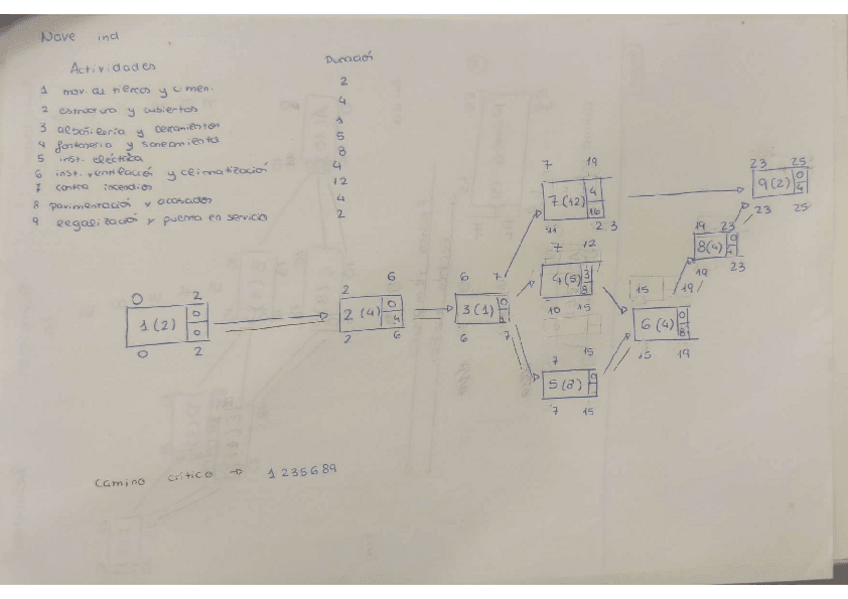 Nave ind
Actividades Duración
1 mov. de tierras y cimen. 2
2 estructura y cubiertas 4
3 albañilería y cerramientos 1
4 fontanería y saneamiento 5
5 inst. eléctrica 8
6 inst. ventilación y climatización 4
7 contra incendios 12
8 pavimentación y acabados 4
9 legalización y puesta en servicio 2
0 2
1 (2) 0 0
0 2
2 6
2 (4) 0 4
2 6
6 7
3 (1) 0
6 7
7 19
7 (12) 4 16
11 23
7 12
4 (5) 3 8
10 15
7 15
5 (8) 0
7 15
15 19
6 (4) 0 8
15 19
19 23
8 (4) 0
19 23
23 25
9 (2) 0
23 25
Camino crítico → 1 2 3 5 6 8 9